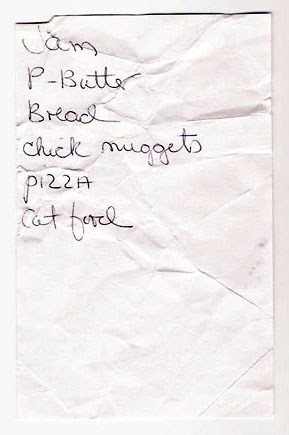 Jam
P-Butter
Bread
chick nuggets
pizzA
Cat food